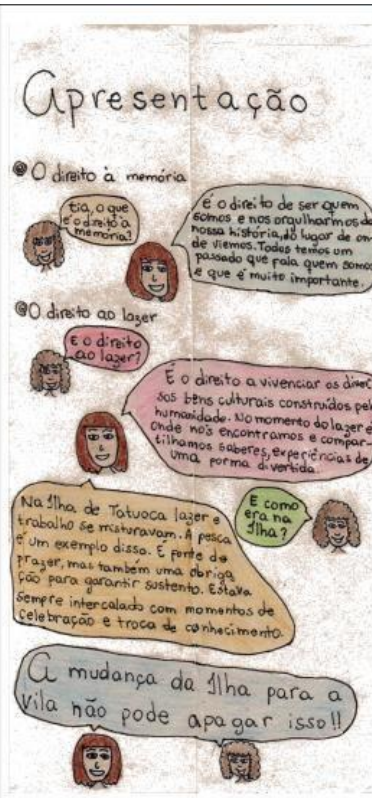 Apresentação
@ O direito à memória
tia, o que
é o direito à
memória?
é o direito de ser quem
somos e nos orgulharmos da
nossa história, do lugar de on-
de viemos. Todos temos um
passado que fala quem somos
e que é muito importante.
@ O direito ao lazer
E o direito
ao lazer?
É o direito a vivenciar os diver
sos bens culturais construídos pel
humanidade. No momento do lazer é
onde nós encontramos e compar-
tilhamos saberes, experiências de
uma forma divertida.
E como
era na
Ilha?
Na Ilha de Tatuoca lazer e
trabalho se misturavam. A pesca
é um exemplo disso. É fonte de
prazer, mas também uma obriga
ção para garantir sustento. Estava
sempre intercalado com momentos de
celebração e troca de conhecimento.
A mudança da Ilha para a
vila não pode apagar isso!!